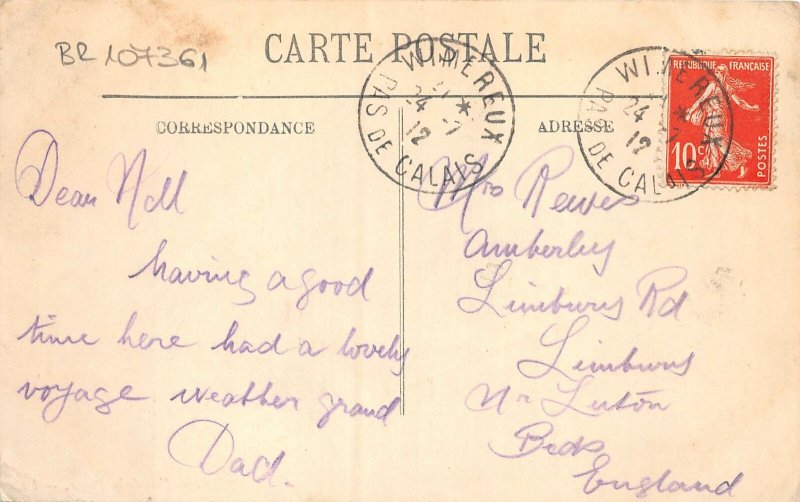 BR 107361
CARTE POSTALE
CORRESPONDANCE
ADRESSE
WIMEREUX
24 - 7
12
PAS DE CALAIS
WIMEREUX
24
12
PAS DE CALAIS
REPUBLIQUE FRANÇAISE
10c
POSTES
Dear
having a good
time here had a lovely
voyage weather grand
Dad.
Mrs Reeves
Amberley
Limbury Rd
Limbury
Nr Luton
Beds
England